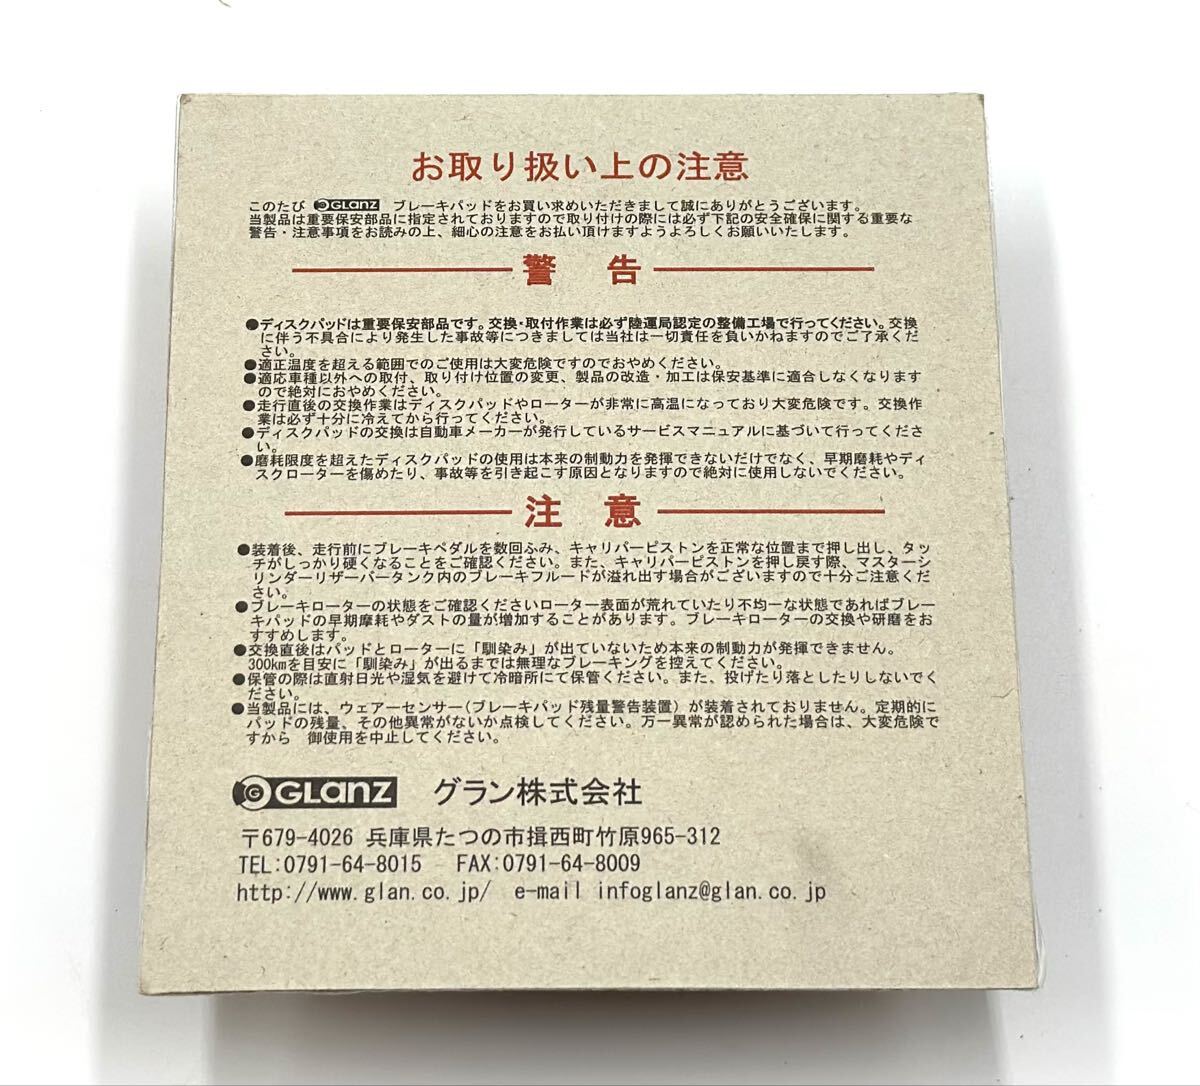 お取り扱い上の注意
このたび GLanz ブレーキパッドをお買い求めいただきまして誠にありがとうございます。
当製品は重要保安部品に指定されておりますので取り付けの際には必ず下記の安全確保に関する重要な
警告・注意事項をお読みの上、細心の注意をお払い頂けますようよろしくお願いいたします。
警 告
●ディスクパッドは重要保安部品です。交換・取付作業は必ず陸運局認定の整備工場で行ってください。交換
に伴う不具合により発生した事故等につきましては当社は一切責任を負いかねますのでご了承くだ
さい。
●適正温度を超える範囲でのご使用は大変危険ですのでおやめください。
●適応車種以外への取付、取り付け位置の変更、製品の改造・加工は保安基準に適合しなくなります
ので絶対におやめください。
●走行直後の交換作業はディスクパッドやローターが非常に高温になっており大変危険です。交換作
業は必ず十分に冷えてから行ってください。
●ディスクパッドの交換は自動車メーカーが発行しているサービスマニュアルに基づいて行ってくださ
い。
●磨耗限度を超えたディスクパッドの使用は本来の制動力を発揮できないだけでなく、早期磨耗やディ
スクローターを傷めたり、事故等を引き起こす原因となりますので絶対に使用しないでください。
注 意
●装着後、走行前にブレーキペダルを数回ふみ、キャリパーピストンを正常な位置まで押し出し、タッ
チがしっかり硬くなることをご確認ください。また、キャリパーピストンを押し戻す際、マスターシ
リンダーリザーバータンク内のブレーキフルードが溢れ出す場合がございますので十分ご注意くだ
さい。
●ブレーキローターの状態をご確認くださいローター表面が荒れていたり不均一な状態であればブレー
キパッドの早期摩耗やダストの量が増加することがあります。ブレーキローターの交換や研磨をお
すすめします。
●交換直後はパッドとローターに「馴染み」が出ていないため本来の制動力が発揮できません。
300kmを目安に「馴染み」が出るまでは無理なブレーキングを控えてください。
●保管の際は直射日光や湿気を避けて冷暗所にて保管ください。また、投げたり落としたりしないでく
ださい。
●当製品には、ウェアーセンサー(ブレーキパッド残量警告装置)が装着されておりません。定期的に
パッドの残量、その他異常がないか点検してください。万一異常が認められた場合は、大変危険で
すから 御使用を中止してください。
GLanz グラン株式会社
〒679-4026 兵庫県たつの市揖西町竹原965-312
TEL:0791-64-8015 FAX:0791-64-8009
http://www.glan.co.jp/ e-mail infoglanz@glan.co.jp